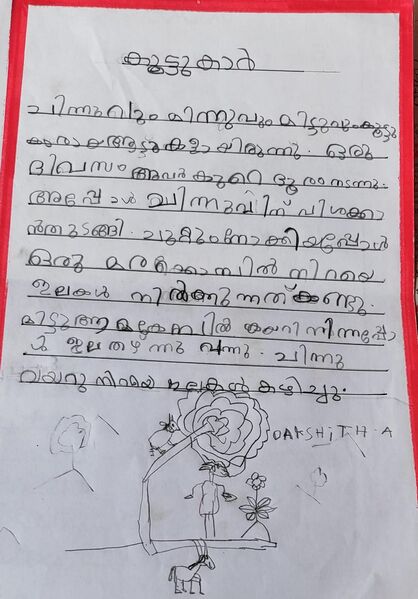 കൂട്ടുകാർ
ചിന്നുവും മിന്നുവും മിട്ടുവും കൂട്ടു
കാരായ ആടുകളായിരുന്നു. ഒരു
ദിവസം അവർ കുറെ ദൂരം നടന്നു.
അപ്പോൾ ചിന്നുവിന് വിശക്കാ
ൻതുടങ്ങി. ചുറ്റും നോക്കിയപ്പോൾ
ഒരു മരക്കൊമ്പിൽ നിറയെ
ഇലകൾ നിൽക്കുന്നത് കണ്ടു.
മിട്ടു ആ മരകൊമ്പിൽ കയറി നിന്നപ്പോ
ൾ ഇല താഴ്ന്നു വന്നു. ചിന്നു
വയറു നിറയെ ഇലകൾ കഴിച്ചു.
DAKSHiTH.A